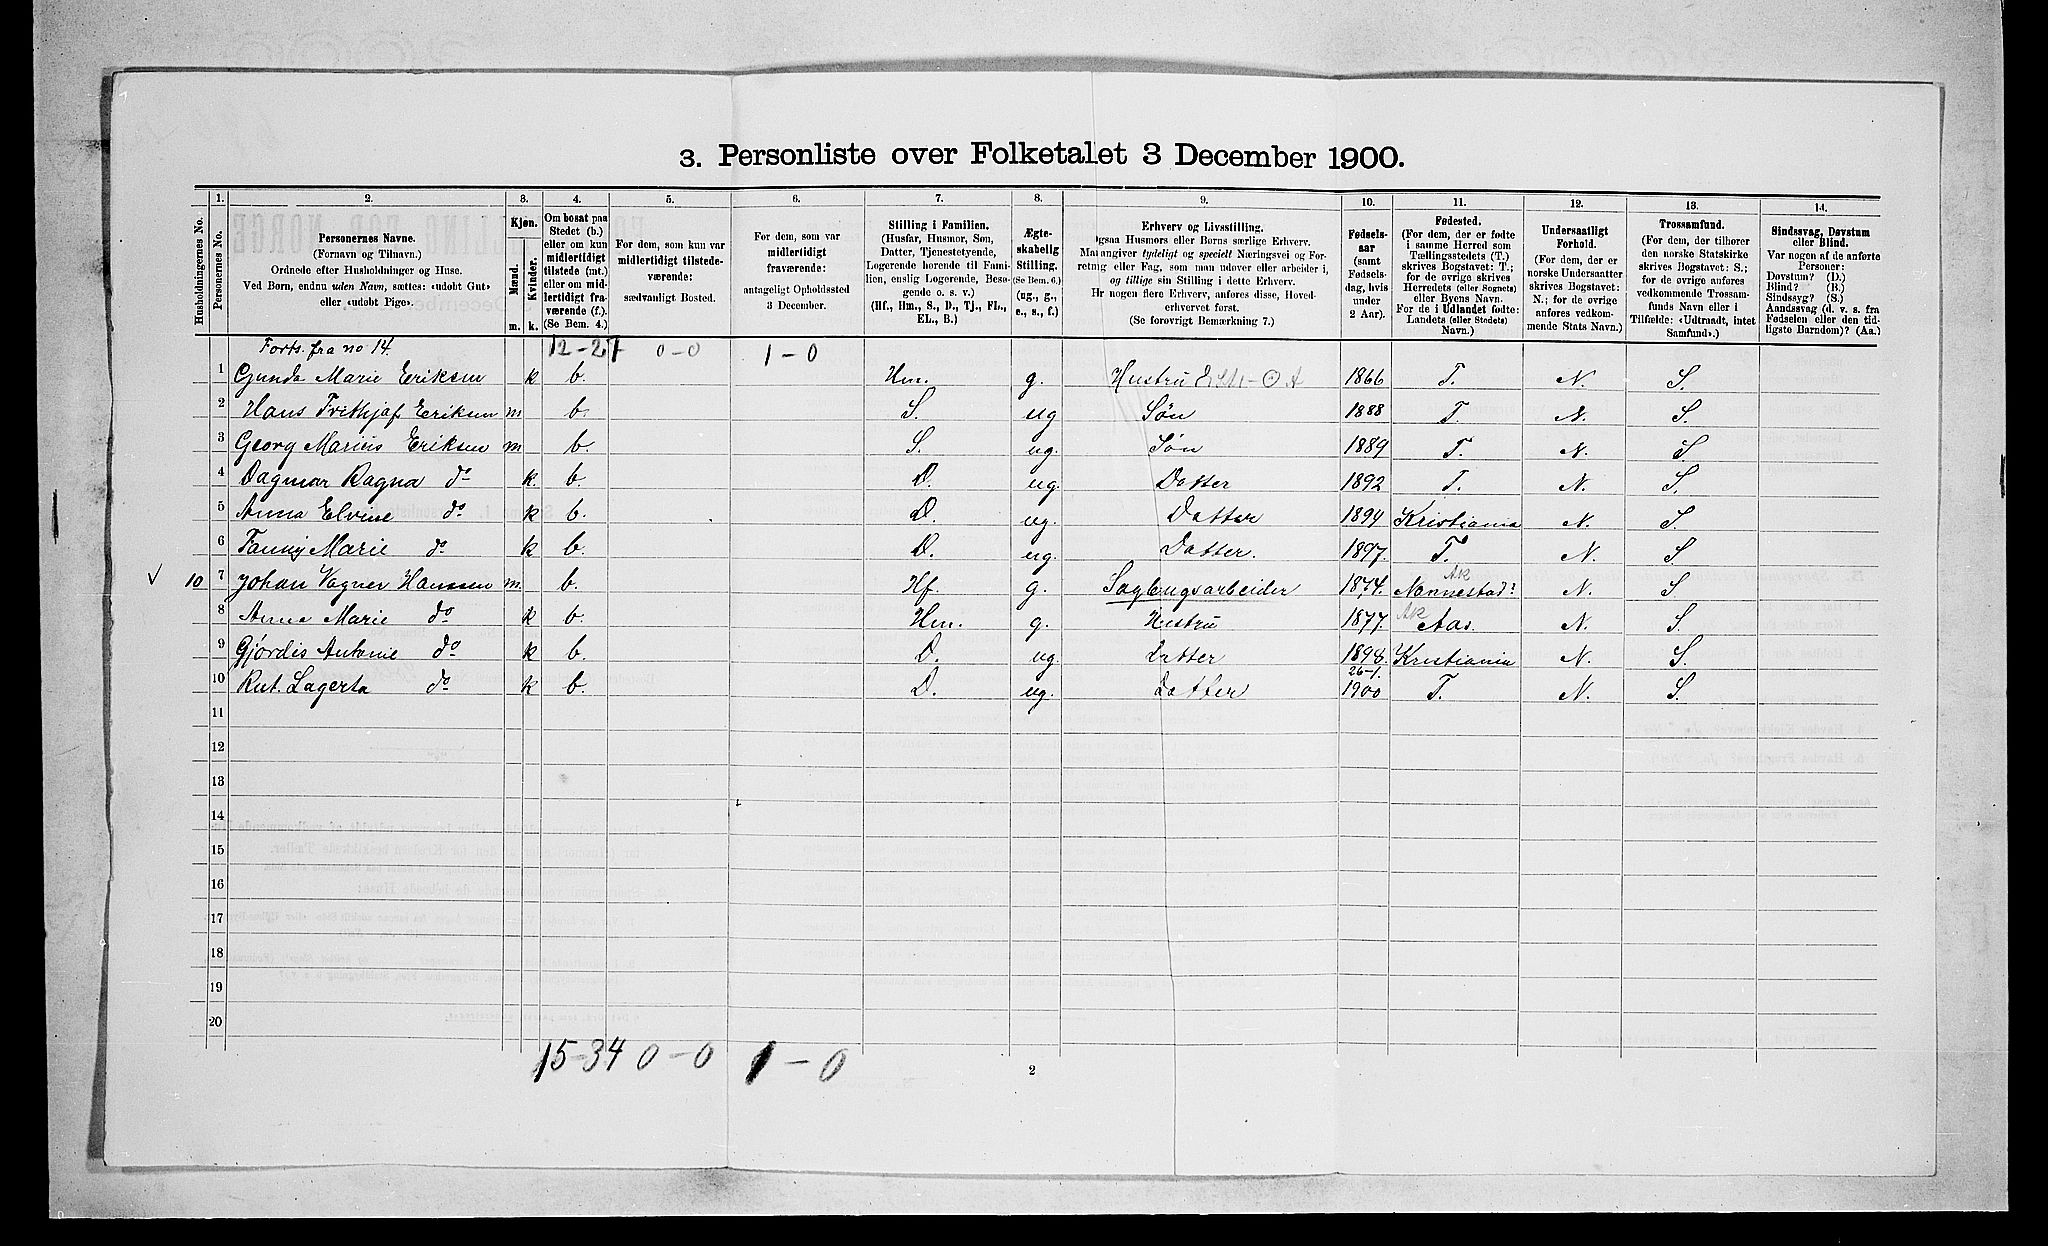 3. Personliste over Folketalet 3 December 1900.
1. 2. 3. 4. 5. 6. 7. 8. 9. 10. 11. 12. 13. 14.
Husholdningernes No.
Personernes No.
Personernes Navne.
(Fornavn og Tilnavn.)
Ordnede efter Husholdninger og Huse.
Ved Børn, endnu uden Navn, sættes: «udøbt Gut»
eller «udøbt Pige».
Kjøn.
Mænd. Kvinder.
m. k.
Om bosat paa
Stedet (b.)
eller om kun
midlertidigt
tilstede (mt.)
eller om mid-
lertidigt fra-
værende (f.).
(Se Bem. 4.)
For dem, som kun var
midlertidigt tilstede-
værende:
sædvanligt Bosted.
For dem, som var
midlertidigt
fraværende:
antageligt Opholdssted
3 December.
Stilling i Familien.
(Husfar, Husmor, Søn,
Datter, Tjenestetyende,
Logerende hørende til Fami-
lien, enslig Logerende, Besø-
gende o. s. v.)
(Hf., Hm., S., D., Tj., FL.,
EL., B.)
Ægte-
skabelig
Stilling.
(Se Bem. 6.)
(ug., g.,
e., s., f.)
Erhverv og Livsstilling.
gsaa Husmors eller Børns særlige Erhverv.
Man angiver tydeligt og specielt Næringsvei og For-
retnig eller Fag, som man udøver eller arbeider i,
og tillige sin Stilling i dette Erhverv.
Hr nogen flere Erhverv, anføres disse, Hoved-
erhvervet først.
(Se forøvrigt Bemærkning 7.)
Fødsels-
aar
(samt
Fødsels-
dag, hvis
under
2 Aar).
Fødested.
(For dem, der er fødte
i samme Herred som
Tællingsstedets (T.)
skrives Bogstavet: T.;
for de øvrige skrives
Herredets (eller Sognets)
eller Byens Navn.
For de i Udlandet fødte:
Landets (eller Stedets)
Navn.)
Undersaatligt
Forhold.
(For dem, der er
norske Undersaatter
skrives Bogstavet:
N.; for de øvrige
anføres vedkom-
mende Stats Navn.)
Trossamfund.
(For dem, der tilhører
den norske Statskirke
skrives Bogstavet: S.;
for de øvrige anføres
vedkommende Trossam-
funds Navn eller i
Tilfælde: «Udtraadt, intet
Samfund».)
Sindssvag, Døvstum
eller Blind.
Var nogen af de anførte
Personer:
Døvstum? (D.)
Blind? (B.)
Sindssyg? (S.)
Aandssvag (d. v. s. fra
Fødselen eller den tid-
ligste Barndom)? (Aa.)
Forts. fra no 14. 12-27 0-0 1-0
1 Gunda Marie Eriksen k b. Hm. g. Hustru 1866 T. N. S.
2 Hans Frithjof Eriksen m b. S. ug Søn 1888 T. N. S.
3 Georg Marius Eriksen m b. S. ug. Søn 1889 T. N. S
4 Dagmar Ragna do k. b. D. ug. Datter 1892 T. N. S.
5 Anna Elvine do k b. D. ug. Datter 1894 Kristiania N. S
6 Fanny Marie do k b. D. ug. Datter. 1897. T. N. S
✓ 10 7 Johan Vagner Hanssen m. b. Hf. g. Sagbrugsarbeider 1874. Ak Nannestad? N. S
8 Anna Marie do k b. Hm. g. Hustru 1877. Ak Aas. N. S.
9 Gjördis Antonie do k b. D. ug Datter 1898. Kristiania N. S.
10 Rut. Lagerta do k b. D. ug. Datter 26-1. 1900 T. N. S.
11
12
13
14
15
16
17
18
19
20
15-34 0-0 1-0
2